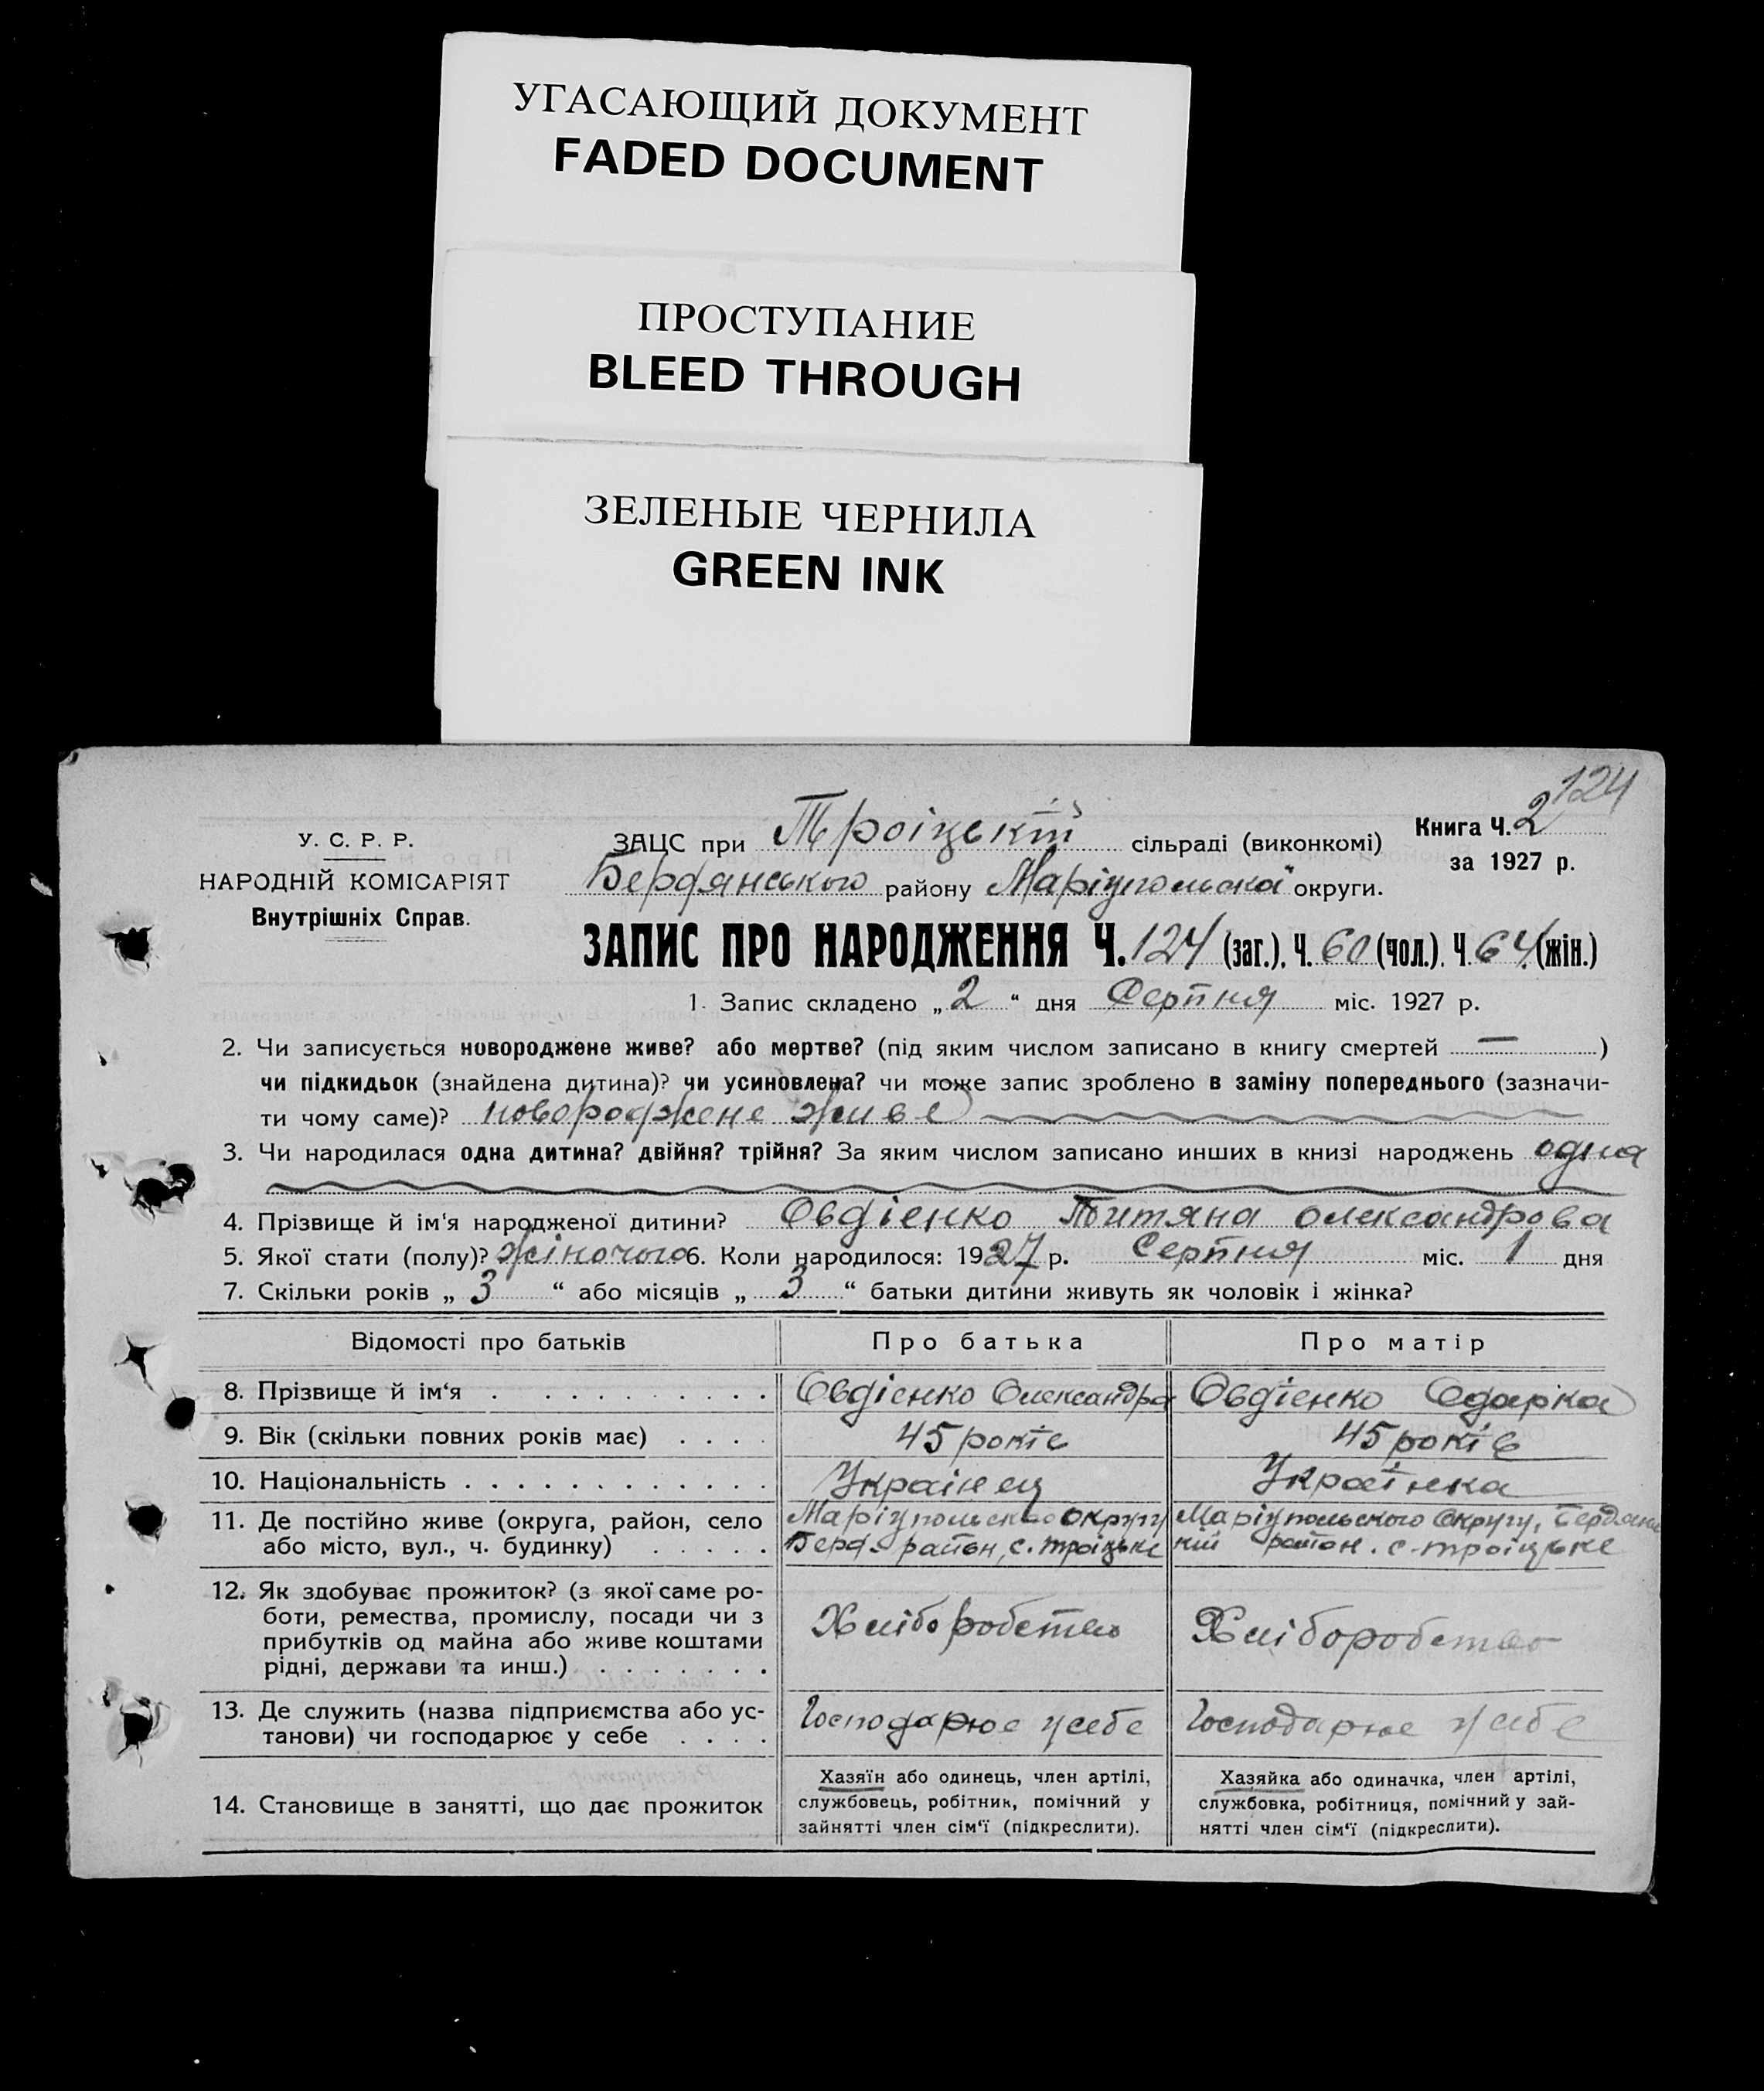 УГАСАЮЩИЙ ДОКУМЕНТ
FADED DOCUMENT
ПРОСТУПАНИЕ
BLEED THROUGH
ЗЕЛЕНЫЕ ЧЕРНИЛА
GREEN INK
124
У. С. Р. Р.
НАРОДНІЙ КОМІСАРІЯТ
Внутрішніх Справ.
ЗАЦС при Троіцькій сільраді (виконкомі)
Бердянського району Маріупольської округи.
Книга Ч. 2
за 1927 р.
ЗАПИС ПРО НАРОДЖЕННЯ Ч. 124 (заг.). Ч. 60 (чол.). Ч. 64 (жін.)
1. Запис складено „ 2 “ дня Серпня міс. 1927 р.
2. Чи записується новороджене живе? або мертве? (під яким числом записано в книгу смертей — )
чи підкидьок (знайдена дитина)? чи усиновлена? чи може запис зроблено в заміну попереднього (зазначи-
ти чому саме)? новороджене живе
3. Чи народилася одна дитина? двійня? трійня? За яким числом записано инших в книзі народжень одна
4. Прізвище й ім'я народженої дитини? Овдієнко Титяна Олександрова
5. Якої стати (полу)? жіночого 6. Коли народилося: 1927 р. Серпня міс. 1 дня
7. Скільки років „ 3 “ або місяців „ 3 “ батьки дитини живуть як чоловік і жінка?
Відомості про батьків Про батька Про матір
8. Прізвище й ім'я Овдієнко Олександра Овдієнко Одарка
9. Вік (скільки повних років має) 45 років 45 років
10. Національність Украінец Украінка
11. Де постійно живе (округа, район, село Маріупольсько округу Маріупольского Округу, Бердянс
або місто, вул., ч. будинку) Берд. район, с. Троіцьке кій район. с. Троіцьке
12. Як здобуває прожиток? (з якої саме ро-
боти, ремества, промислу, посади чи з
прибутків од майна або живе коштами
рідні, держави та инш.) Хліборобство Хліборобство
13. Де служить (назва підприємства або ус-
танови) чи господарює у себе Господарює у себе Господарює у себе
14. Становище в занятті, що дає прожиток
Хазяїн або одинець, член артілі,
службовець, робітник, помічний у
зайнятті член сім'ї (підкреслити).
Хазяйка або одиначка, член артілі,
службовка, робітниця, помічний у зай-
нятті член сім'ї (підкреслити).